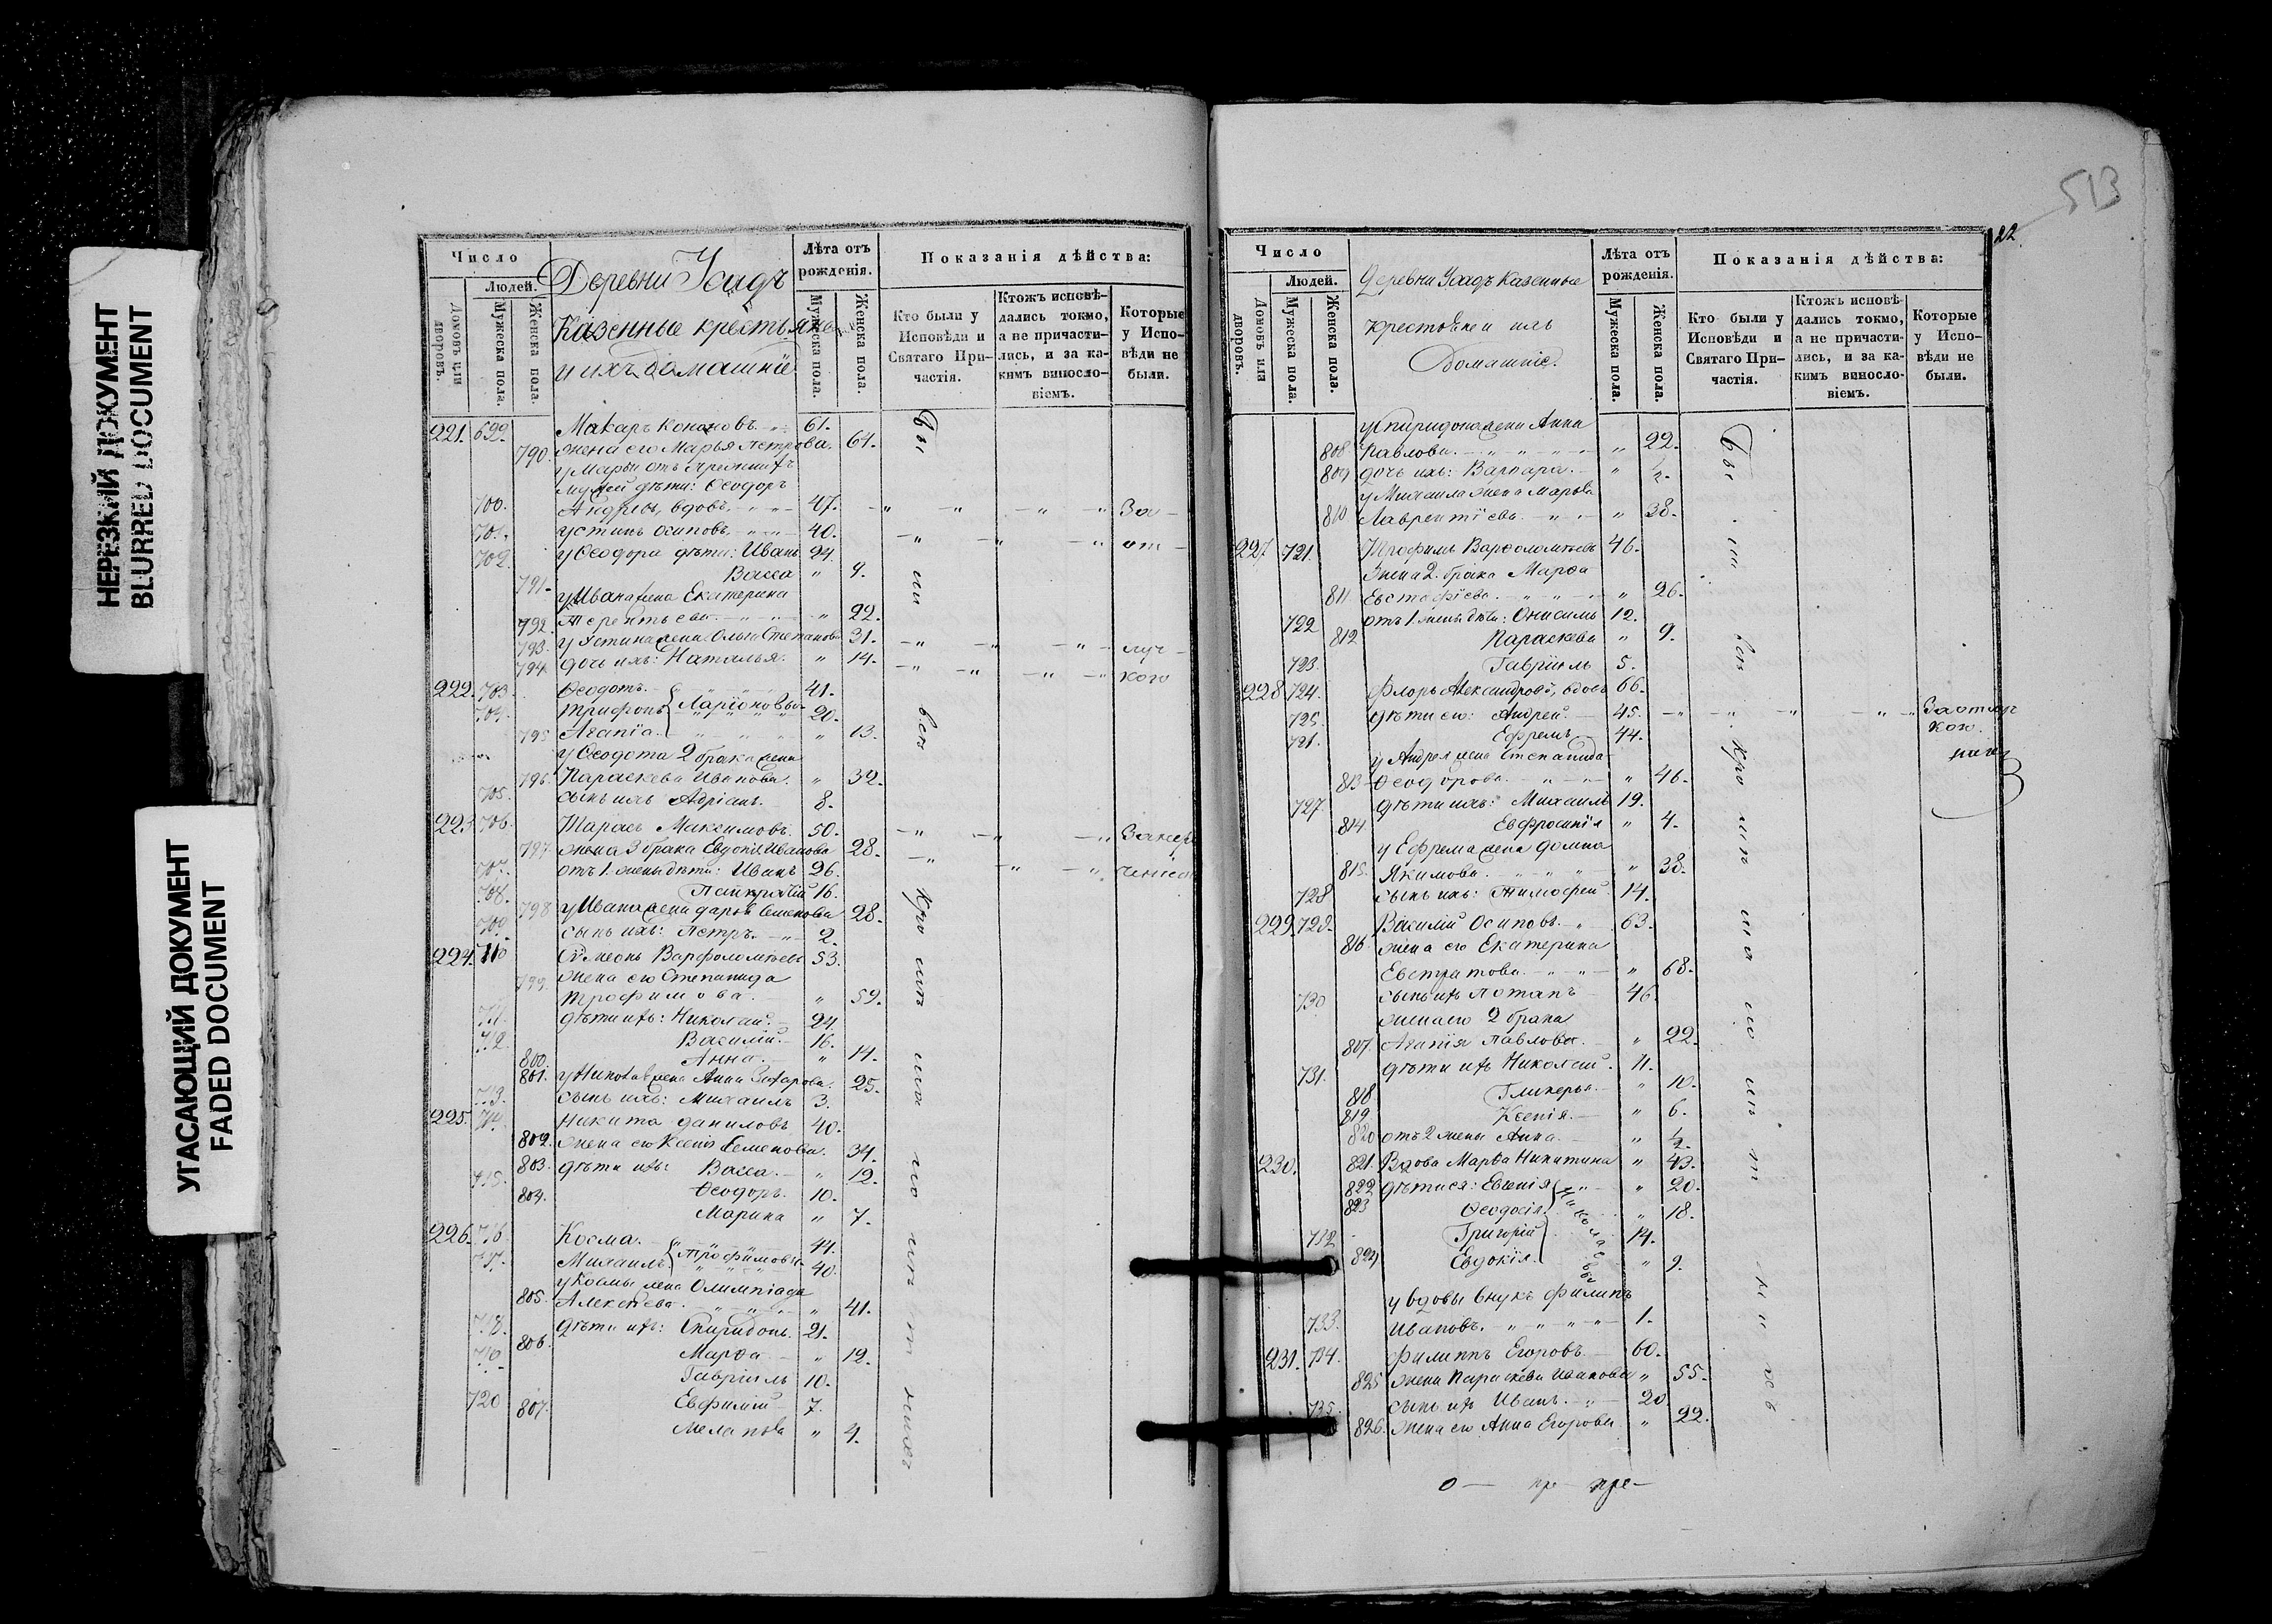 НЕРЕЗКИЙ ДОКУМЕНТ
BLURRED DOCUMENT
УГАСАЮЩИЙ ДОКУМЕНТ
FADED DOCUMENT
Число
Людей.
Домовъ или дворовъ.
Мужеска пола.
Женска пола.
Деревни
Казенные крестьяне
и ихъ домашніе
Лѣта отъ рожденія.
Мужеска пола.
Женска пола.
Показанія дѣйства:
Кто были у Исповѣди и Святаго Причастія.
Ктожъ исповѣдались токмо, а не причастились, и за какимъ винословіемъ.
Которые у Исповѣди не были.
221. 699. Макаръ Кононовъ 61.
790. жена его Марья Петрова. 64.
у Марьи отъ
мужей дѣти: Ѳеодоръ
700. Андреевъ, вдовъ 47. За
701. Устинъ Осиповъ 40. от
702. у Ѳеодора дѣти: Иванъ 24.
791. Васса " 9.
у Ивана жена Екатерина
792. Терентьева " 22.
793. у Устина жена Ольга Степанова 31. луч
794. дочь ихъ: Наталья. " 14. кою
222. 703. Ѳеодотъ 41.
704. Трифонъ Ларіоновы 20.
795 Агапіа " 13.
у Ѳеодота 2 брака жена
796. Параскева Иванова. " 32.
705. сынъ ихъ Адріанъ. 8.
223. 706. Тарасъ Максимовъ. 50.
797. жена 3 брака Евдокія Иванова 28.
707. отъ 1 жены дѣти: Иванъ 26.
708. Панкратій 16.
798 у Ивана жена Дарья Семенова 28.
709. сынъ ихъ: Петръ. 2.
224. 710 Сѵмеонъ Варфоломѣевъ 53.
799. жена его Степанида
Трофимова. " 59.
711. дѣти ихъ: Николай. 24.
712. Василій. 16.
800. Анна. " 14.
801. у Николая жена Анна Захарова. 25.
713. сынъ ихъ: Михаилъ 3.
225. 714. Никита Даниловъ 40.
802. жена его Ксенія Семенова. 34.
803. дѣти ихъ: Васса. " 12.
715. Ѳеодоръ. 10.
804. Марина " 7.
226. 716. Косма. 44.
717. Михаилъ Трофимовы 40.
у Космы жена Олимпіада
805. Алексѣева. " 41.
718. дѣти ихъ: Спиридонъ. 21.
806. Марѳа " 12.
719. Гавріилъ 10.
720 Евфимій 7.
807. Меланья " 4.
513
22.
Число
Людей.
Домовъ или дворовъ.
Мужеска пола.
Женска пола.
Деревни Казенные
крестьяне и ихъ
Домашніе.
Лѣта отъ рожденія.
Мужеска пола.
Женска пола.
Показанія дѣйства:
Кто были у Исповѣди и Святаго Причастія.
Ктожъ исповѣдались токмо, а не причастились, и за какимъ винословіемъ.
Которые у Исповѣди не были.
у Спиридона жена Анна
808 Павлова. " 22.
809 дочь ихъ: Варвара. " ½.
у Михаила жена Марья
810 Лаврентіева " 38.
227 721. Трофимъ Варѳоломѣевъ 46.
Жена 2. брака Марѳа
811 Евстафіева. " 26.
722 отъ 1 жены дѣти: Онисимъ 12.
812 Параскева " 9.
723. Гавріилъ 5.
228 724. Флоръ Александровъ, вдовъ 66.
725. дѣти его: Андрей. 45.
721. Ефремъ 44.
у Андрея жена Степанида
813 Ѳеодорова. " 46.
727. дѣти ихъ: Михаилъ 19.
814 Евфросинія " 4.
у Ефрема жена Домна
815. Якимова. " 38.
728 сынъ ихъ: Тимофей. 14.
229. 729. Василій Осиповъ. 63.
816. жена его Екатерина
Евстратова. " 68.
730 сынъ ихъ Потапъ 46.
жена его 2 брака
807. Агапія Павлова. " 22.
731. дѣти ихъ Николай. 11.
818 Гликерья. " 10.
819. Ксенія. " 6.
820 отъ 2 жены Анна. " ½.
230. 821. Вдова Марѳа Никитина " 43.
822 дѣти ея: Евгенія " 20.
823 Ѳеодосія. " 18.
732 Григорій 14.
824 Евдокія. " 9.
Николаевы
у вдовы внукъ Филипъ
733. Ивановъ. 1.
231. 734. Филиппъ Егоровъ. 60.
825 жена Параскева Иванова " 55.
735. сынъ ихъ Иванъ. 20
826. жена его Анна Егорова. " 22.